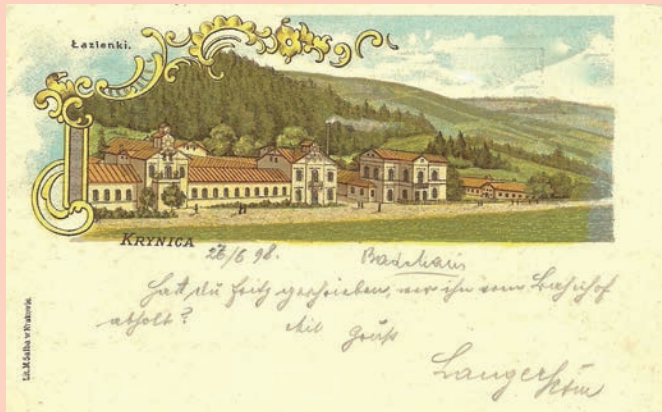 Łazienki.
KRYNICA
26/6 98.
Badehaus
Hast du Fritz geschrieben, wer ihn vom Bahnhof
abholt?
Mit Gruß
Lit. M. Salba w Krakowie.